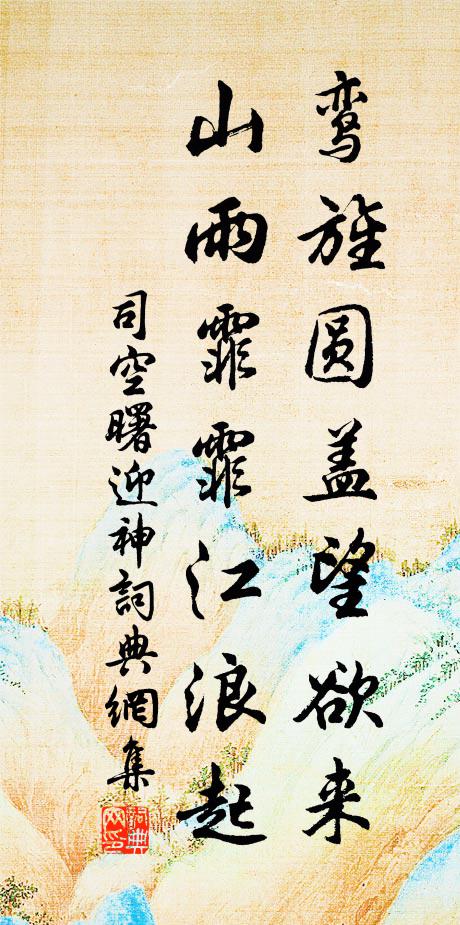 鸾旌圆盖望欲来
山雨霏霏江浪起
司空曙迎神詞典網集
詞典